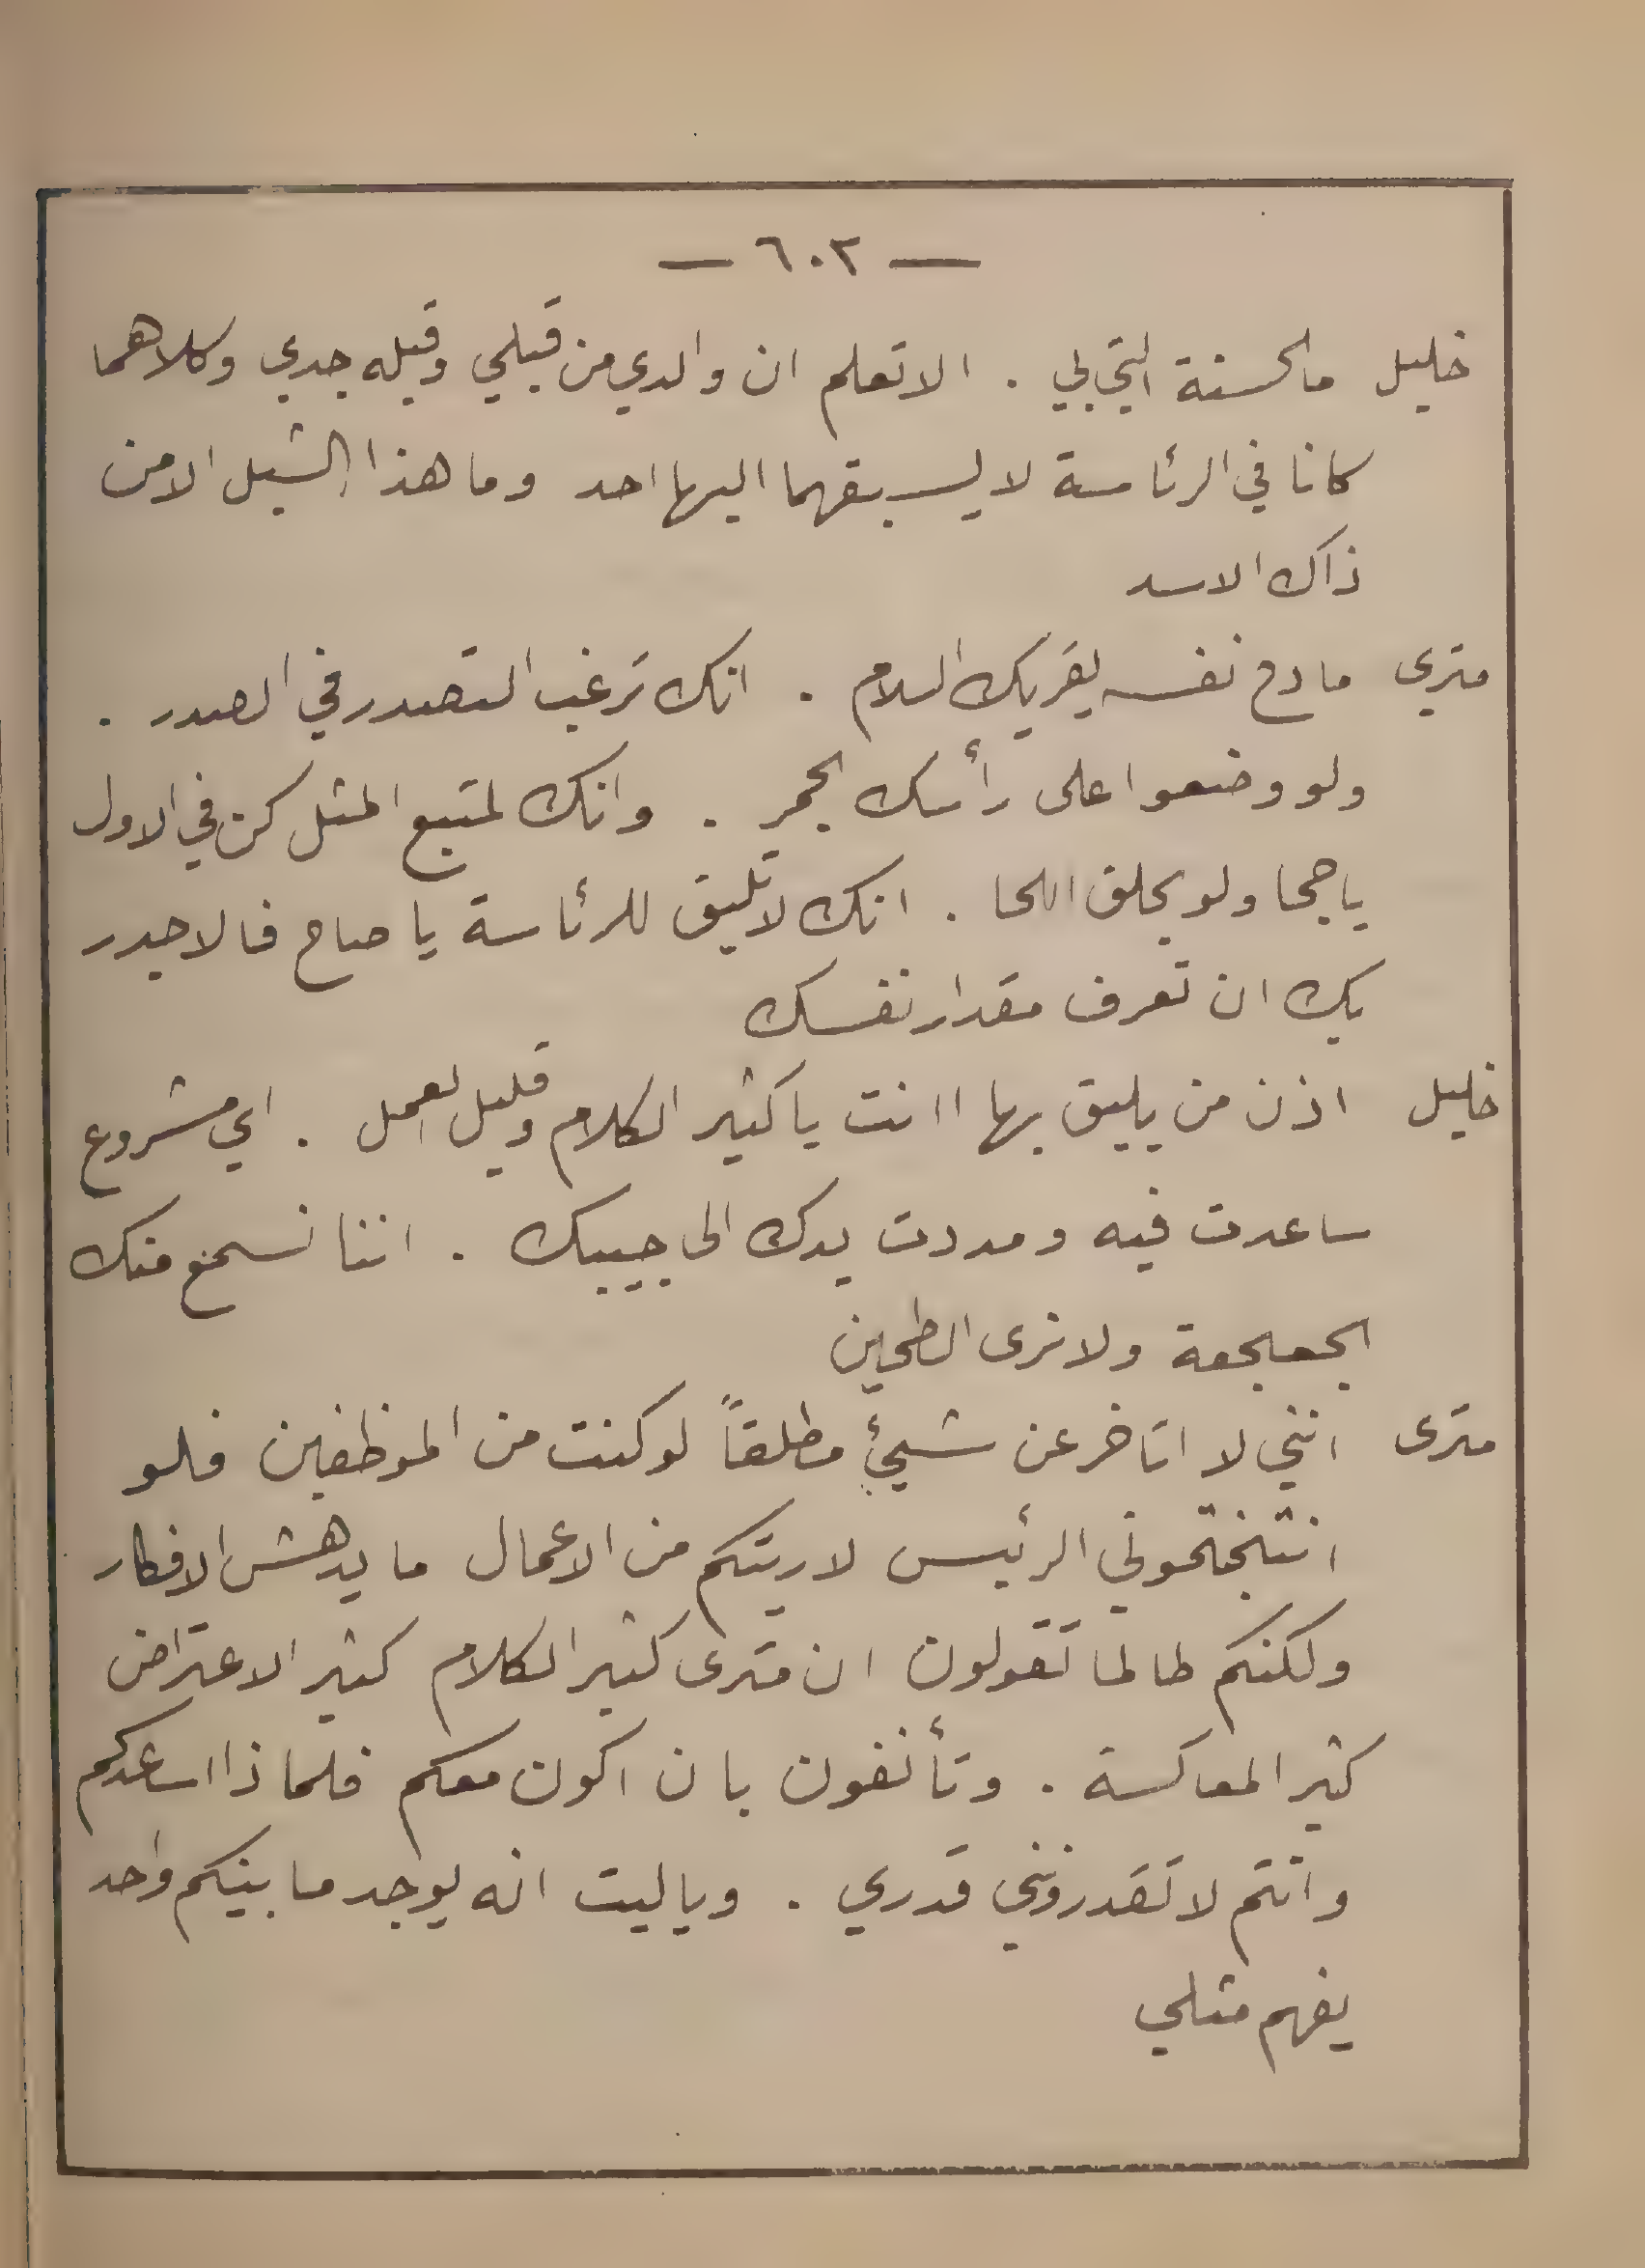 — ٦٠٢ —
خليل مالحسنة التي بي . الا تعلم ان والدي من قبلي وقبله جدي وكلاهما
كانا في الرئاسة لا يسبقهما اليها احد وما هذا الشبل الا من
ذاك الاسد
متري مادح نفسه يقريك السلام . انك ترغب التصدر في الصدر .
ولو وضعوا على رأسك الحجر . وانك لمتبع المثل كن في الاول
يا جحا ولو بحلق اللحا . انك لا تليق للرئاسة يا صاح فالاجدر
بك ان تعرف مقدار نفسك
خليل اذن من يليق بها اانت يا كثير الكلام وقليل العمل . اي مشروع
ساعدت فيه ومددت يدك الى جيبك . اننا نسمع منك
الجعجعة ولا نرى الطحين
مترى انني لا اتاخر عن شيئ مطلقاً لو كنت من الموظفين فلو
الرئيس لاريتكم من الاعمال ما يدهش الافكار
ولكنكم طالما تقولون ان مترى كثير الكلام كثير الاعتراض
كثير المعاكسة . وتأنفون بان اكون معكم فلماذا اساعدكم
وانتم لا تقدرونني قدري . وياليت انه يوجد ما بينكم واحد
يفهم مثلي